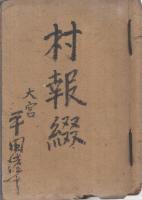 村報綴
大宮
平田